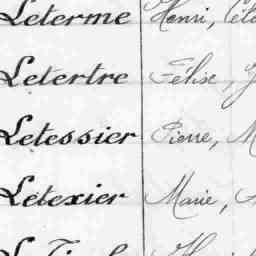 Leterme Henri,
Letertre Félise,
Letessier Pierre, M
Letexier Marie,